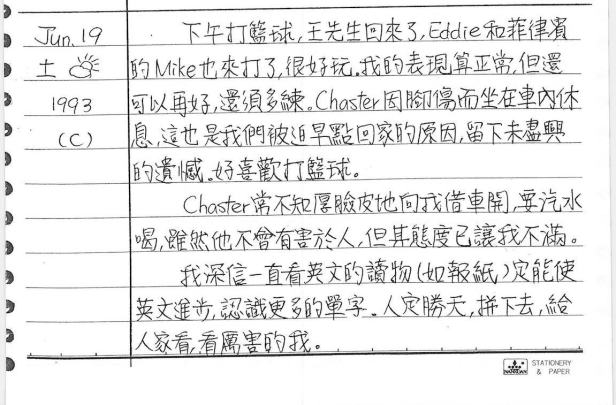 Jun. 19
土
1993
(C)
下午打籃球,王先生回來了,Eddie和菲律賓
的Mike也來打了,很好玩。我的表現算正常,但還
可以再好,還須多練。Chaster因腳傷而坐在車內休
息,這也是我們被迫早點回家的原因,留下未盡興
的遺憾。好喜歡打籃球。
Chaster常不知厚臉皮地向我借車開,要汽水
喝,雖然他不會有害於人,但其態度已讓我不滿。
我深信一直看英文的讀物(如報紙)定能使
英文進步,認識更多的單字。人定勝天,拼下去,給
人家看,看厲害的我。
STATIONERY
& PAPER